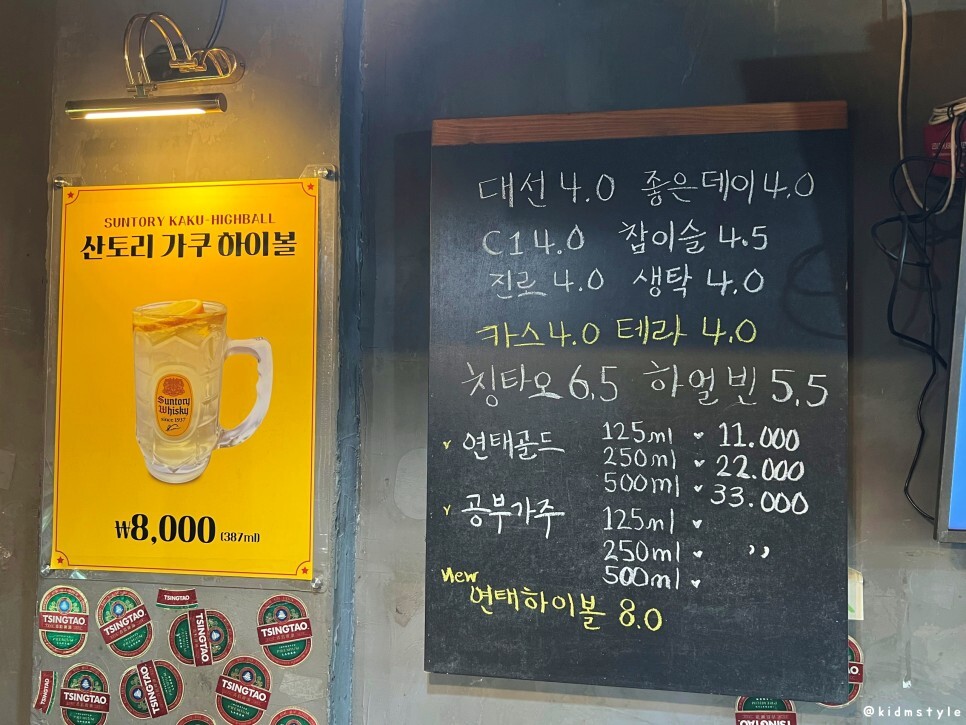 SUNTORY KAKU-HIGHBALL
산토리 가쿠 하이볼
Suntory
Whisky
since 1937
₩8,000 (387ml)
대선 4.0 좋은데이 4.0
C1 4.0 참이슬 4.5
진로 4.0 생탁 4.0
카스 4.0 테라 4.0
칭타오 6.5 하얼빈 5.5
연태골드 125ml 11.000
250ml 22.000
500ml 33.000
공부가주 125ml
250ml ,,
500ml
New
연태하이볼 8.0
TSINGTAO
TSINGTAO
TSINGTAO
TSINGTAO
TSINGTAO
TSINGTAO
TSINGTAO
TSINGTAO
TSINGTAO
@kidmstyle